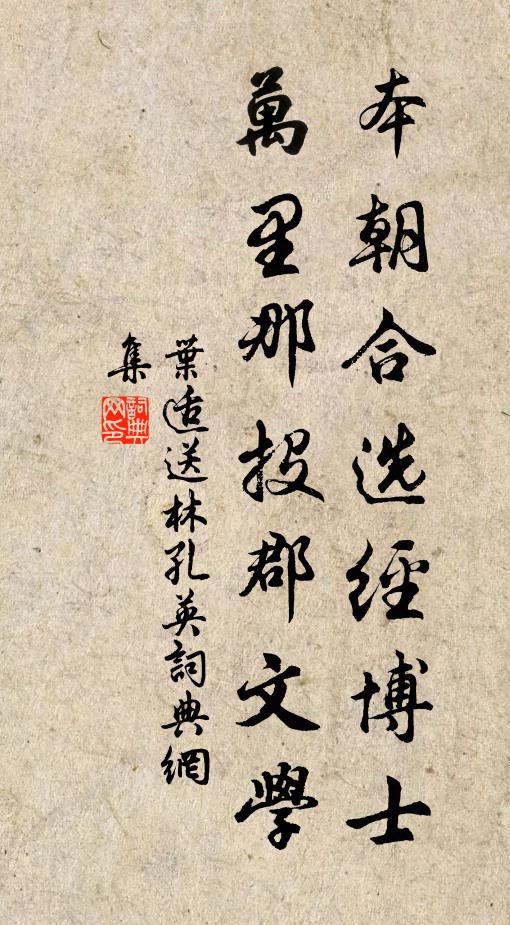 本朝合选經博士
萬里那投郡文學
葉适送林孔英詞典網
集
詞典
网印